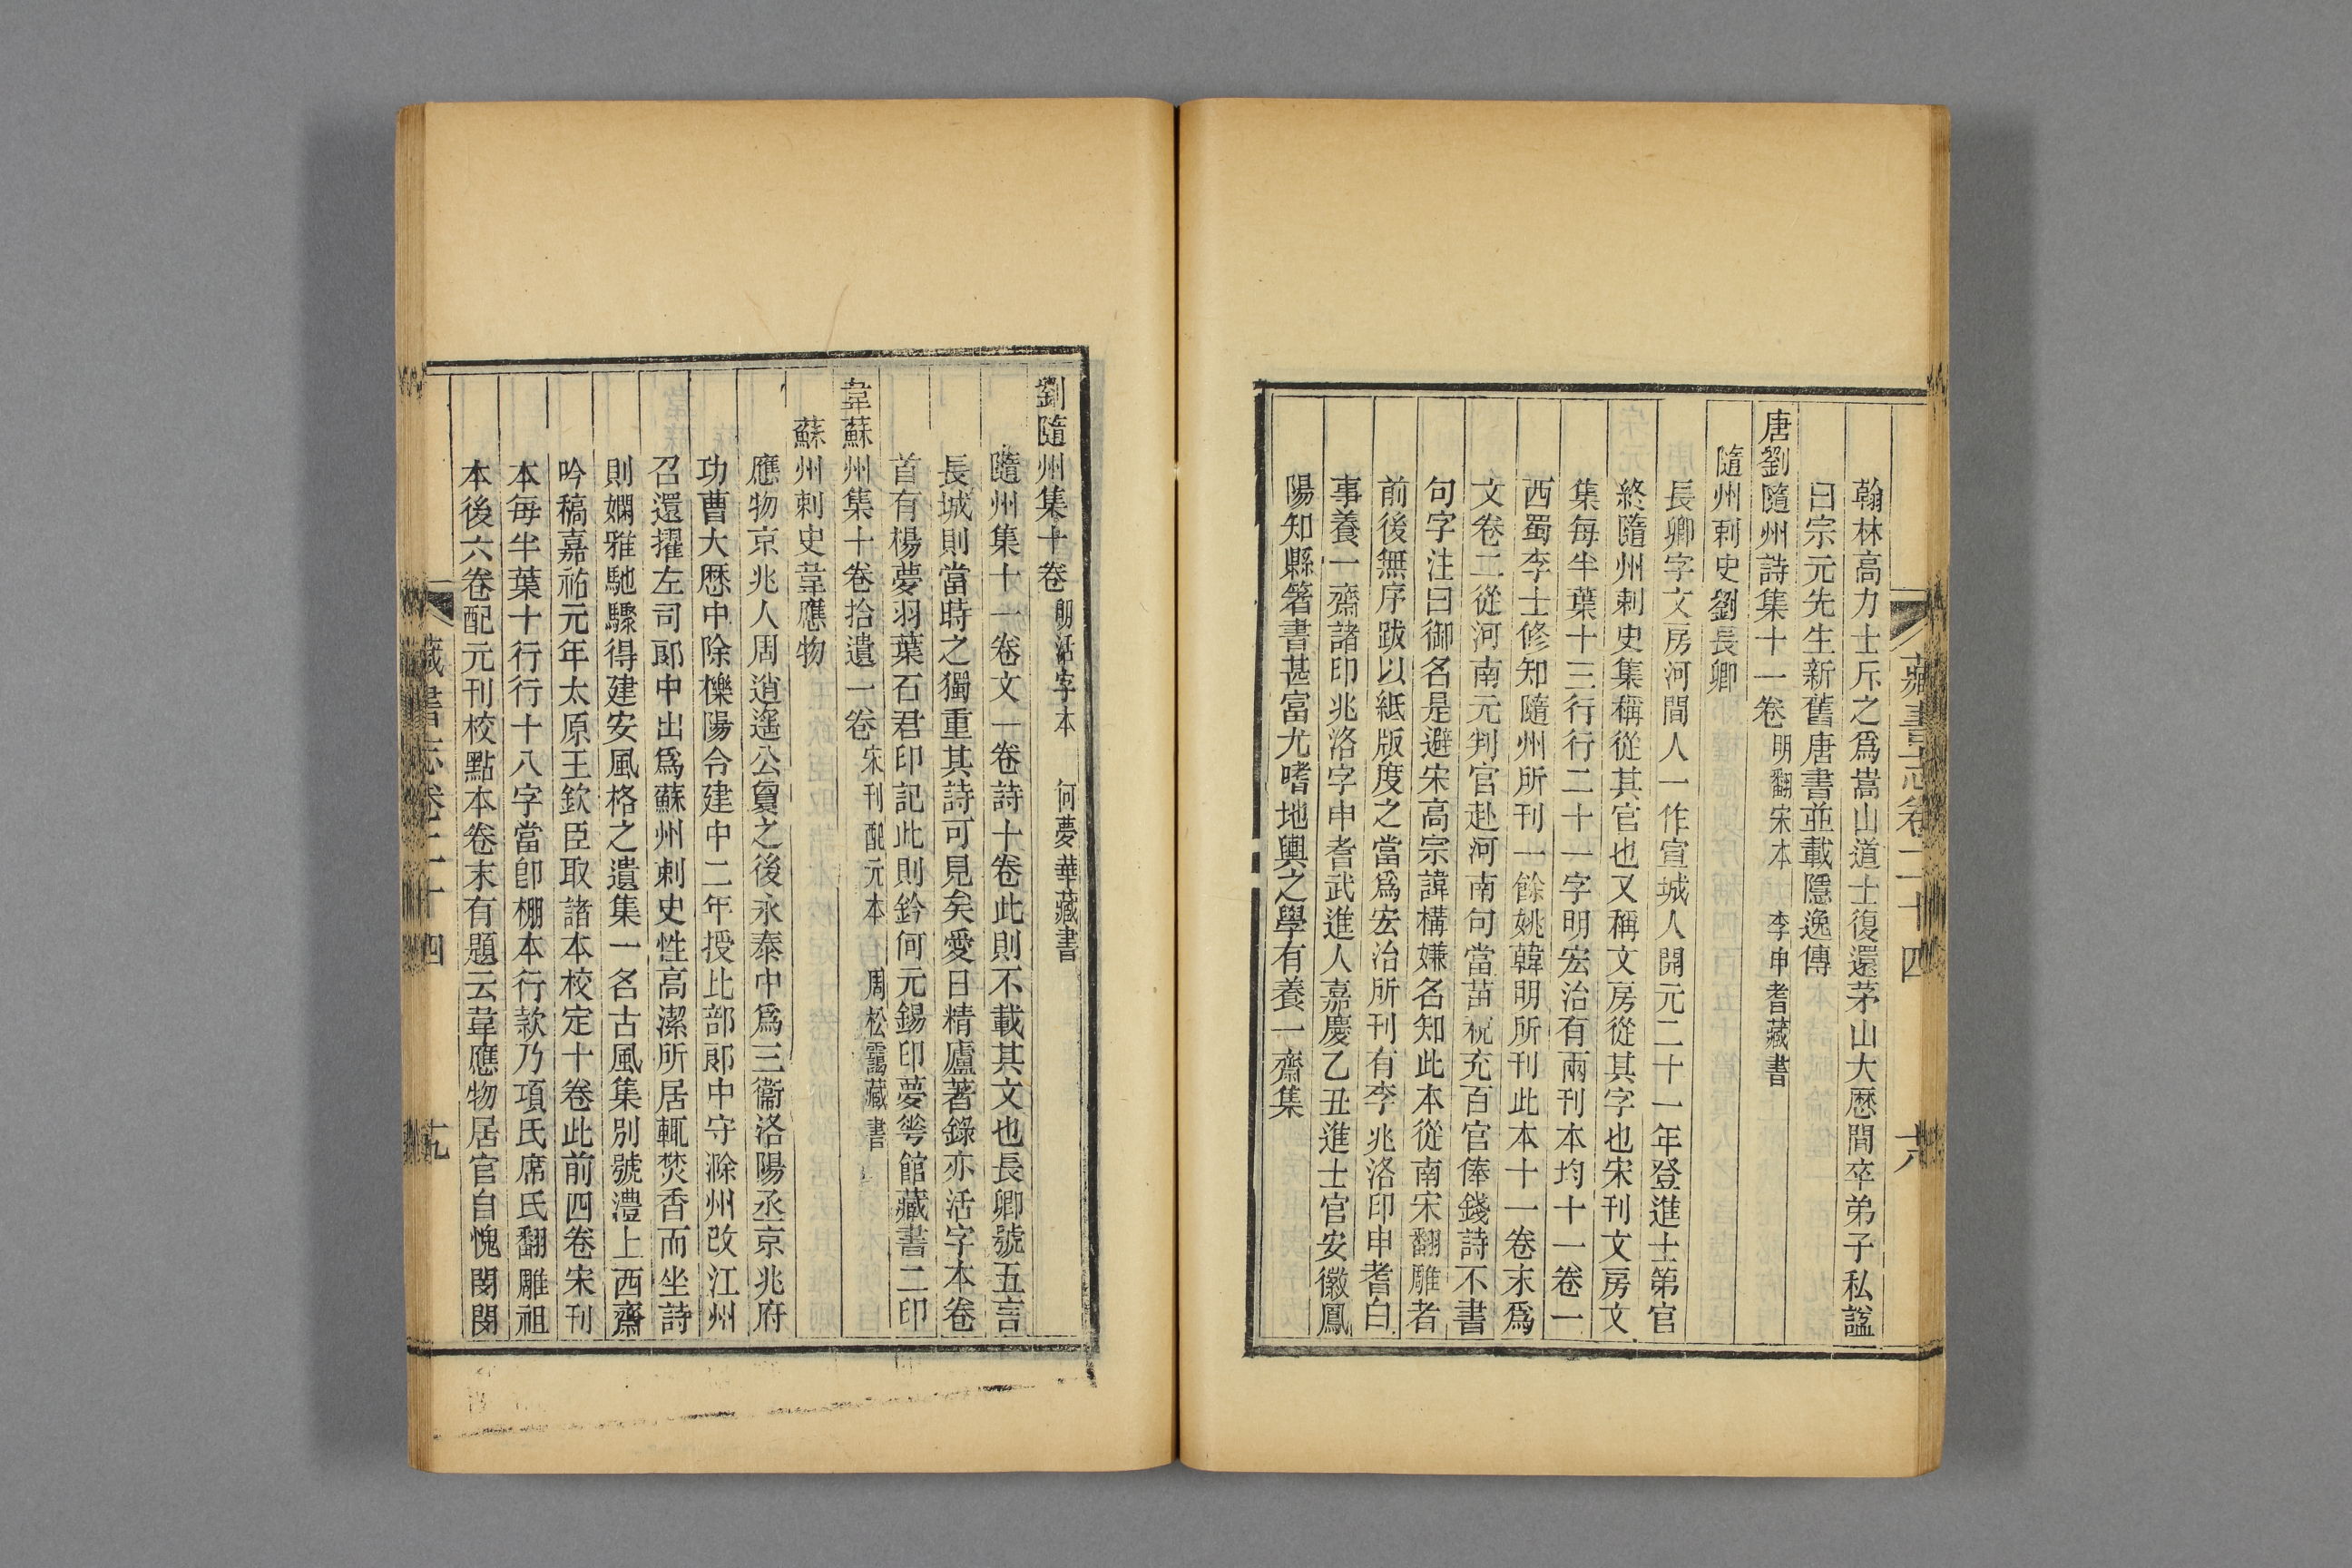 藏書志卷二十四 大
翰林高力士斥之爲嵩山道士復還茅山大厯間卒弟子私諡
曰宗元先生新舊唐書並載隱逸傳
唐劉隨州詩集十一卷 明翻宋本 李申耆藏書
隨州刺史劉長卿
長卿字文房河間人一作宣城人開元二十一年登進士第官
終隨州刺史集稱從其官也又稱文房從其字也宋刊文房文
集每半葉十三行行二十一字明宏治有兩刊本均十一卷一
西蜀李士修知隨州所刊一餘姚韓明所刊此本十一卷末爲
文卷二從河南元判官赴河南句當苗稅充百官俸錢詩不書
句字注曰御名是避宋高宗諱構嫌名知此本從南宋翻雕者
前後無序跋以紙版度之當爲宏治所刊有李兆洛印申耆白
事養一齋諸印兆洛字申耆武進人嘉慶乙丑進士官安徽鳳
陽知縣箸書甚富尤嗜地輿之學有養一齋集
劉隨州集十卷 朙活字本 何夢華藏書
隨州集十一卷文一卷詩十卷此則不載其文也長卿號五言
長城則當時之獨重其詩可見矣愛日精廬著錄亦活字本卷
首有楊夢羽葉石君印記此則鈐何元錫印夢華館藏書二印
韋蘇州集十卷拾遺一卷 宋刊配元本 周松靄藏書
蘇州刺史韋應物
應物京兆人周逍遙公夐之後永泰中爲三衞洛陽丞京兆府
功曹大厯中除櫟陽令建中二年授比部郎中守滁州改江州
召還擢左司郎中出爲蘇州刺史性高潔所居輒焚香而坐詩
則嫻雅馳驟得建安風格之遺集一名古風集別號灃上西齋
吟稿嘉祐元年太原王欽臣取諸本校定十卷此前四卷宋刊
本每半葉十行行十八字當卽棚本行款乃項氏席氏翻雕祖
本後六卷配元刊校點本卷末有題云韋應物居官自愧閔閔
藏書志卷二十四 九